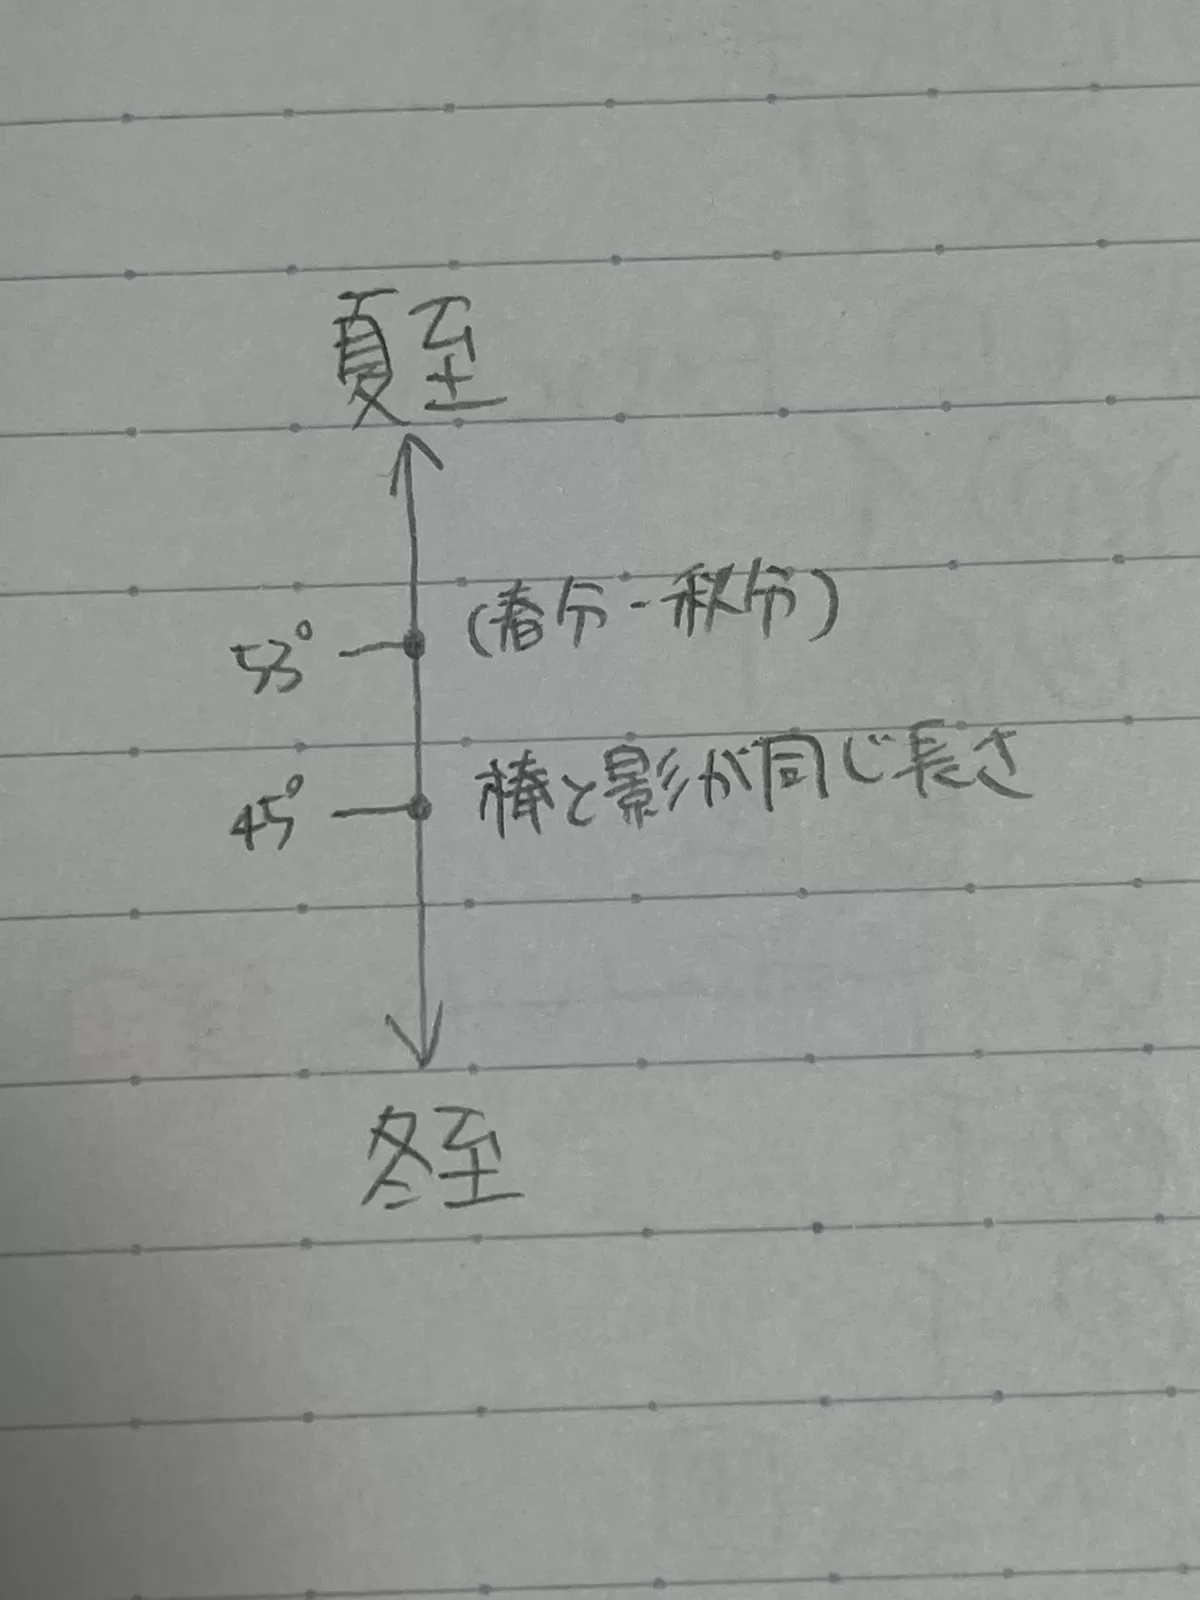 夏至
53° (春分・秋分)
45° 棒と影が同じ長さ
冬至